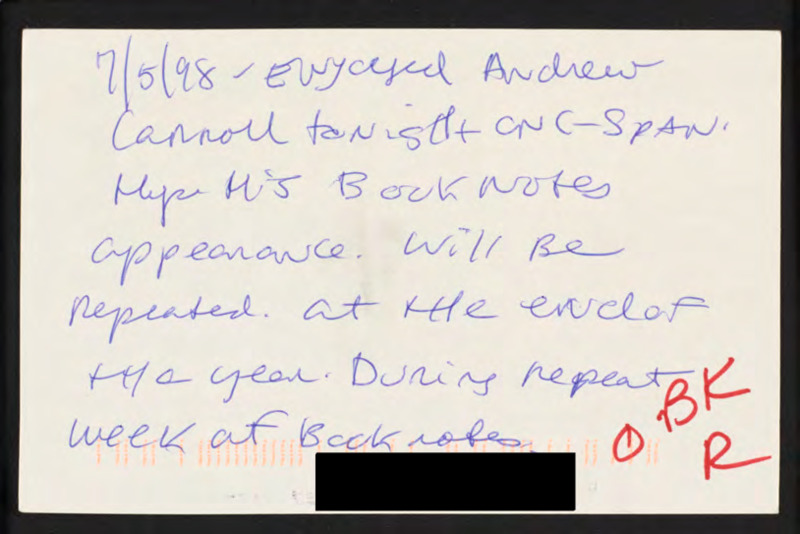 7/5/98 - Enjoyed Andrew
Carroll tonight on C-SPAN.
Hope His Booknotes
appearance. Will Be
repeated. at the end of
the year. During repeat
week of Booknotes.
BK
R